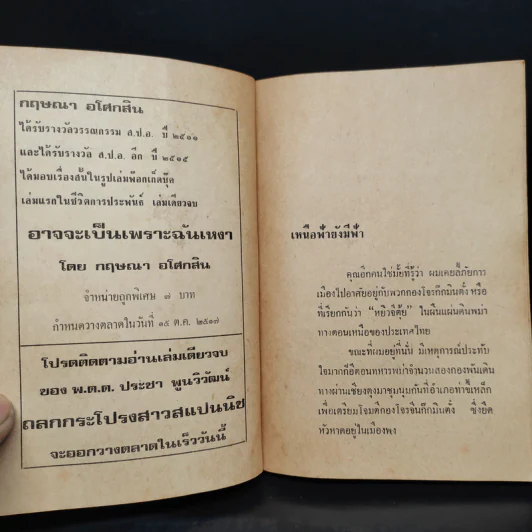 กฤษณา อโศกสิน
ได้รับรางวัลวรรณกรรม ส.ป.อ. ปี ๒๕๑๑
และได้รับรางวัล ส.ป.อ. อีก ปี ๒๕๑๕
ได้มอบเรื่องสั้นในรูปเล่มพ๊อกเก็ตบุ๊ค
เล่มแรกในชีวิตการประพันธ์ เล่มเดียวจบ
อาจจะเป็นเพราะฉันเหงา
โดย กฤษณา อโศกสิน
จำหน่ายถูกพิเศษ ๗ บาท
กำหนดวางตลาดในวันที่ ๑๕ ต.ค. ๒๕๑๗
โปรดติดตามอ่านเล่มเดียวจบ
ของ พ.ต.ต. ประชา พูนวิวัฒน์
ถลกกระโปรงสาวสแปนนิช
จะออกวางตลาดในเร็ววันนี้
เหนือฟ้ายังมีฟ้า
คุณอีกคนใช่มั้ยที่รู้ว่า ผมเคยลี้ภัยการ
เมืองไปอาศัยอยู่กับพวกกองโจรก๊กมินตั๋ง หรือ
ที่เรียกกันว่า "หยิวจีตุ้ย" ในผืนแผ่นดินพม่า
ทางตอนเหนือของประเทศไทย
ขณะที่ผมอยู่ที่นั่น มีเหตุการณ์ประทับ
ใจมากก็คือตอนทหารพม่าจำนวนสองกองพันเดิน
ทางผ่านเชียงตุงมาชุมนุมกันที่อำเภอท่าขี้เหล็ก
เพื่อเตรียมโจมตีกองโจรจีนก๊กมินตั๋ง ซึ่งยึด
หัวหาดอยู่ในเมืองพง